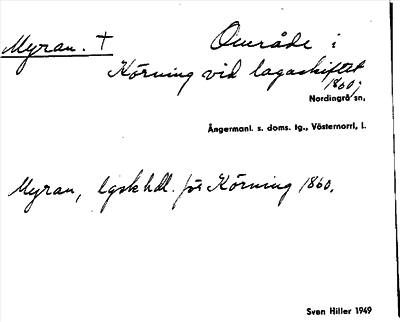 Myran. † Område i
Körning vid lagaskiftet
1860;
Nordingrå sn,
Ångermanl. s. doms. tg., Västernorrl, l.
Myran, lgskhdl. för Körning 1860.
Sven Hiller 1949